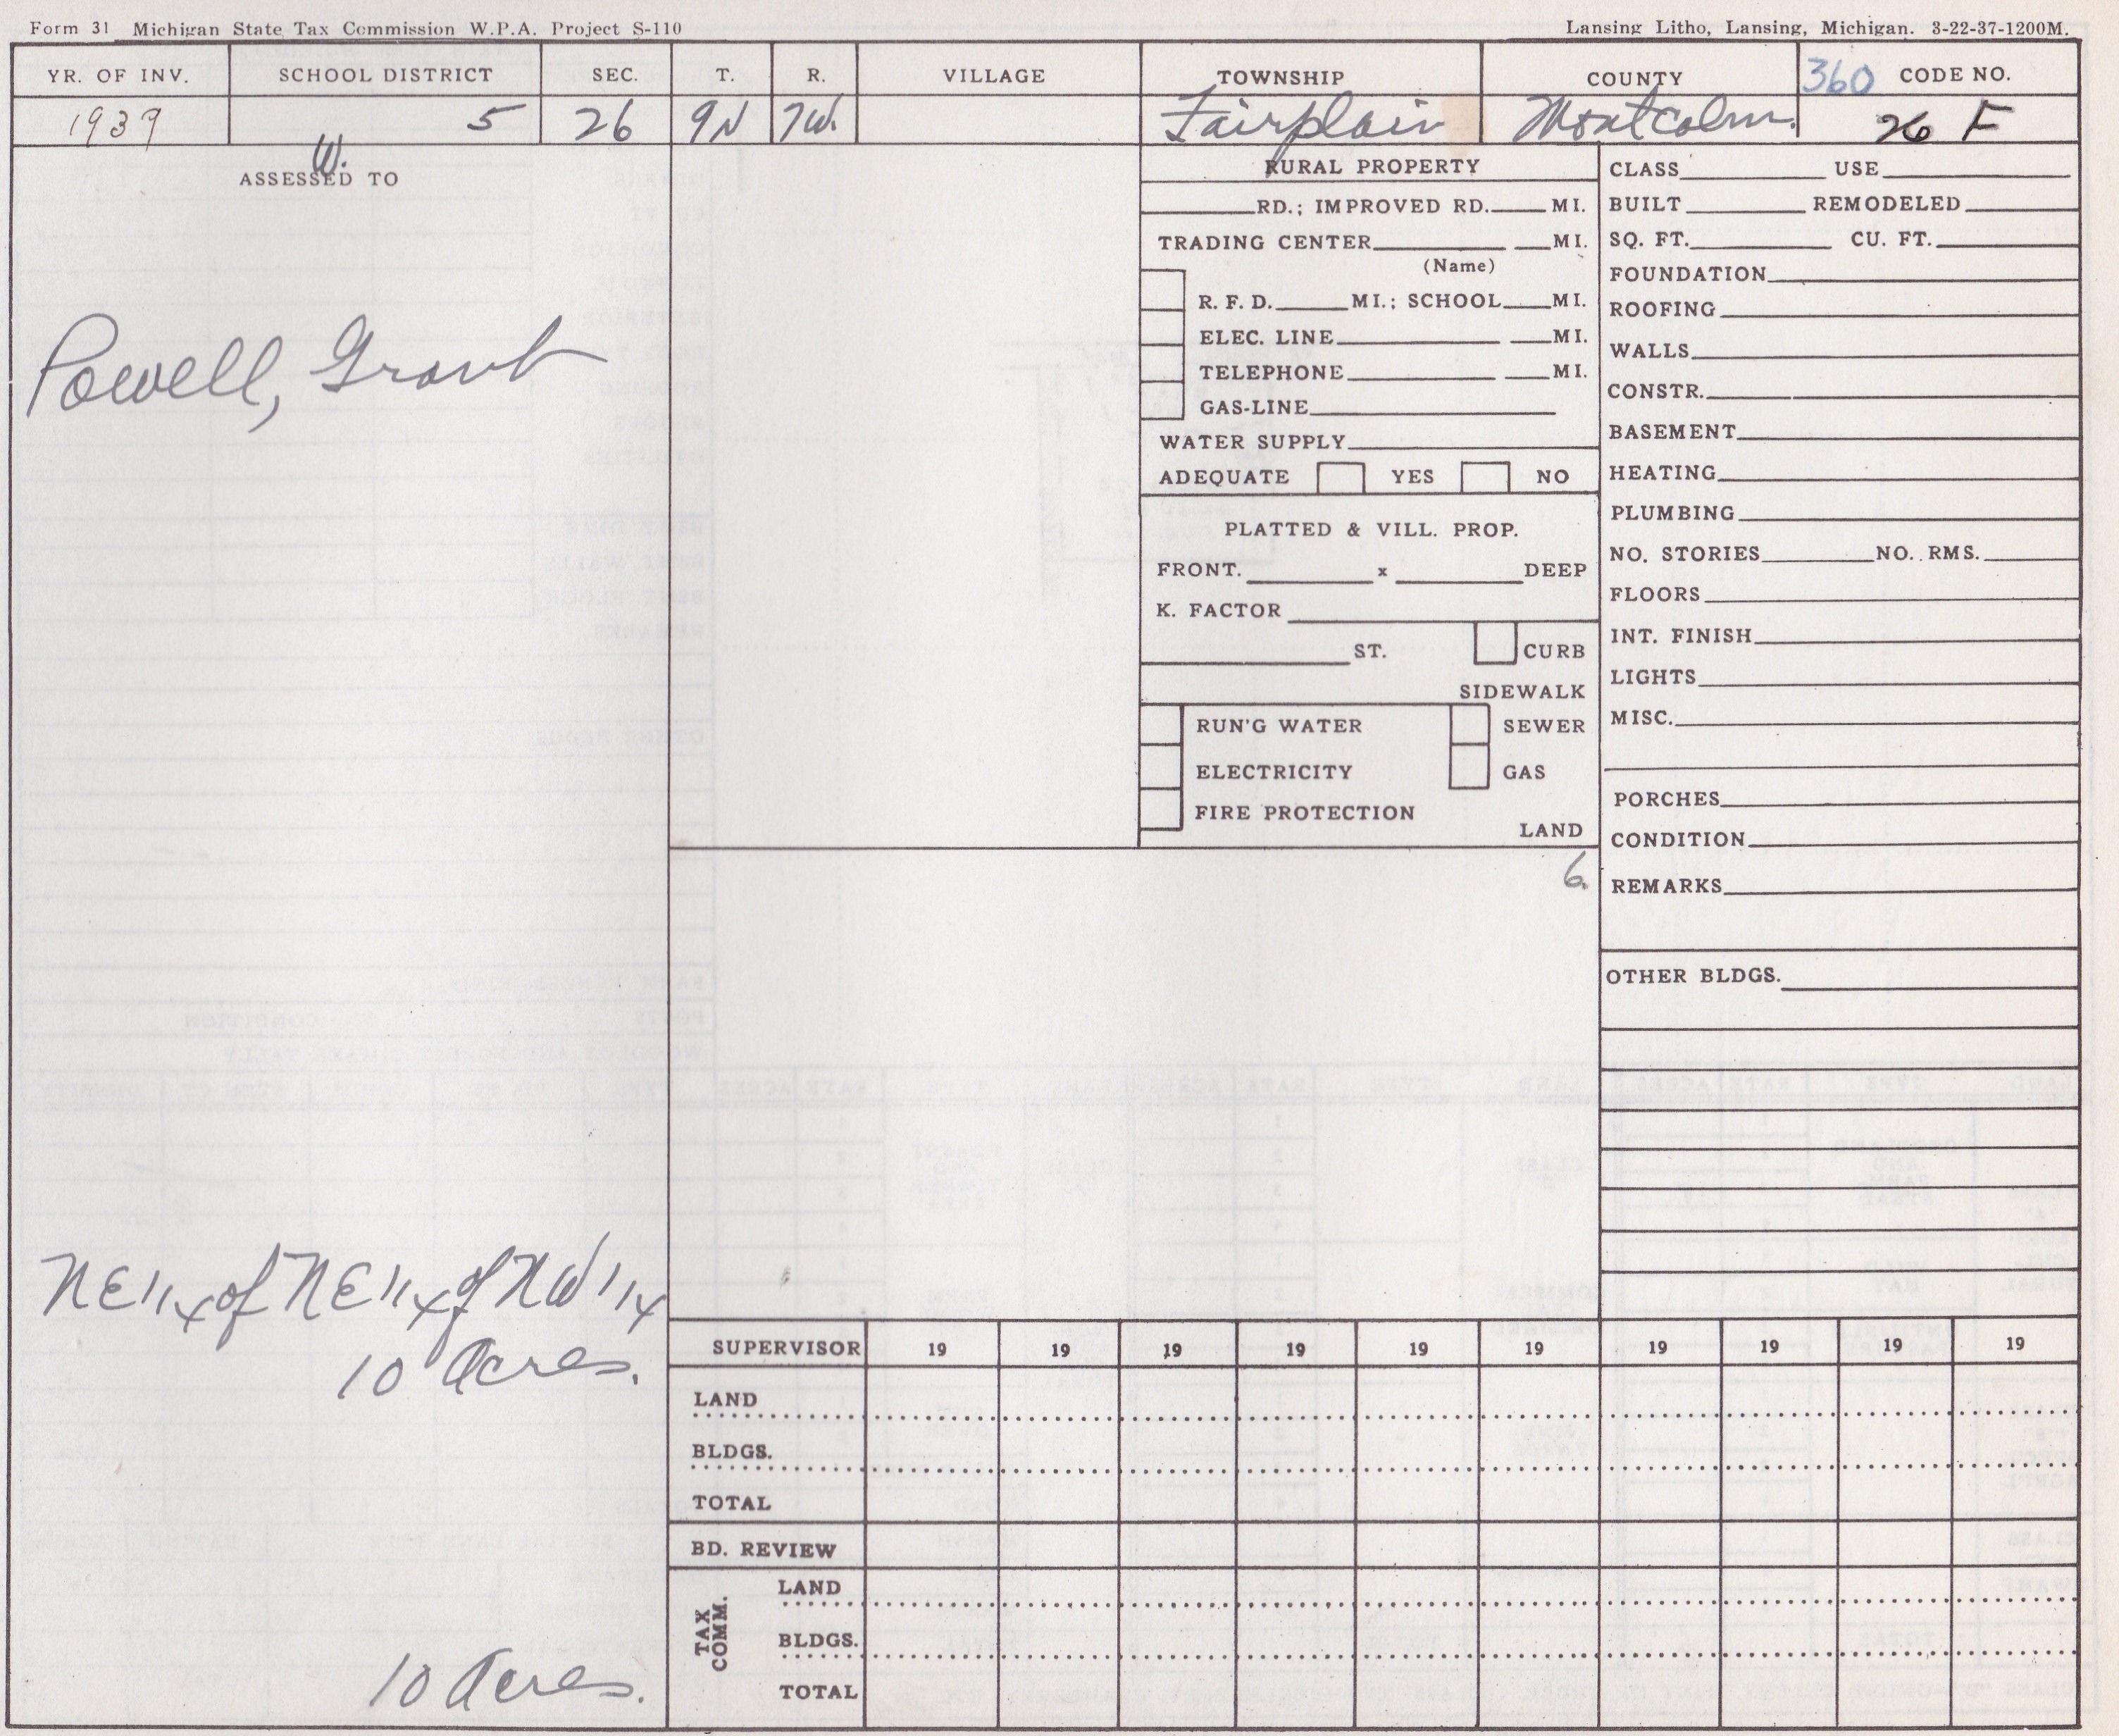 Form 31 Michigan State Tax Commission W.P.A. Project S-110
Lansing Litho, Lansing, Michigan. 3-22-37-1200M.
YR. OF INV. SCHOOL DISTRICT SEC. T. R. VILLAGE TOWNSHIP COUNTY 360 CODE NO.
1939 5 26 9N 7W. Fairplain Montcalm. 26 F
W.
ASSESSED TO
Powell, Grant
NE 1/4 of NE 1/4 of NW 1/4
10 Acres.
10 Acres.
RURAL PROPERTY
RD.; IMPROVED RD. MI.
TRADING CENTER MI.
(Name)
R. F. D. MI.; SCHOOL MI.
ELEC. LINE MI.
TELEPHONE MI.
GAS-LINE
WATER SUPPLY
ADEQUATE YES NO
PLATTED & VILL. PROP.
FRONT. x DEEP
K. FACTOR
ST. CURB
SIDEWALK
RUN'G WATER SEWER
ELECTRICITY GAS
FIRE PROTECTION
LAND
6.
CLASS USE
BUILT REMODELED
SQ. FT. CU. FT.
FOUNDATION
ROOFING
WALLS
CONSTR.
BASEMENT
HEATING
PLUMBING
NO. STORIES NO. RMS.
FLOORS
INT. FINISH
LIGHTS
MISC.
PORCHES
CONDITION
REMARKS
OTHER BLDGS.
SUPERVISOR 19 19 19 19 19 19 19 19 19 19
LAND
BLDGS.
TOTAL
BD. REVIEW
TAX COMM.
LAND
BLDGS.
TOTAL